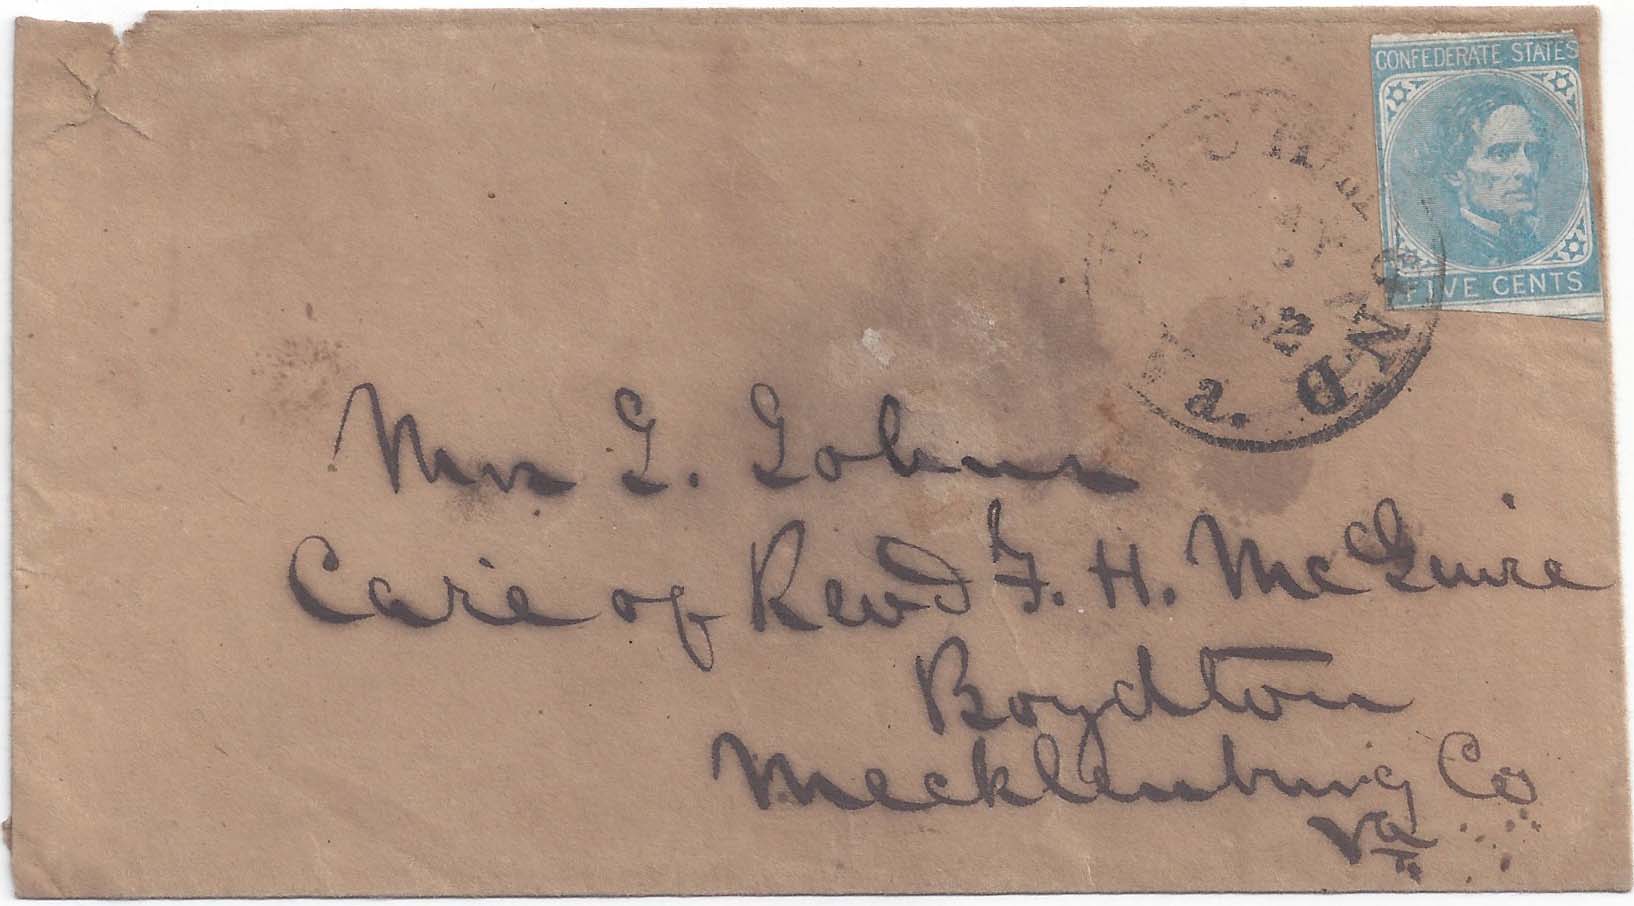 CONFEDERATE STATES
FIVE CENTS
RICHMOND Va.
62
Mrs G. Johns
Care of Revd F. H. McGuire
Boydton
Mecklenburg Co
Va